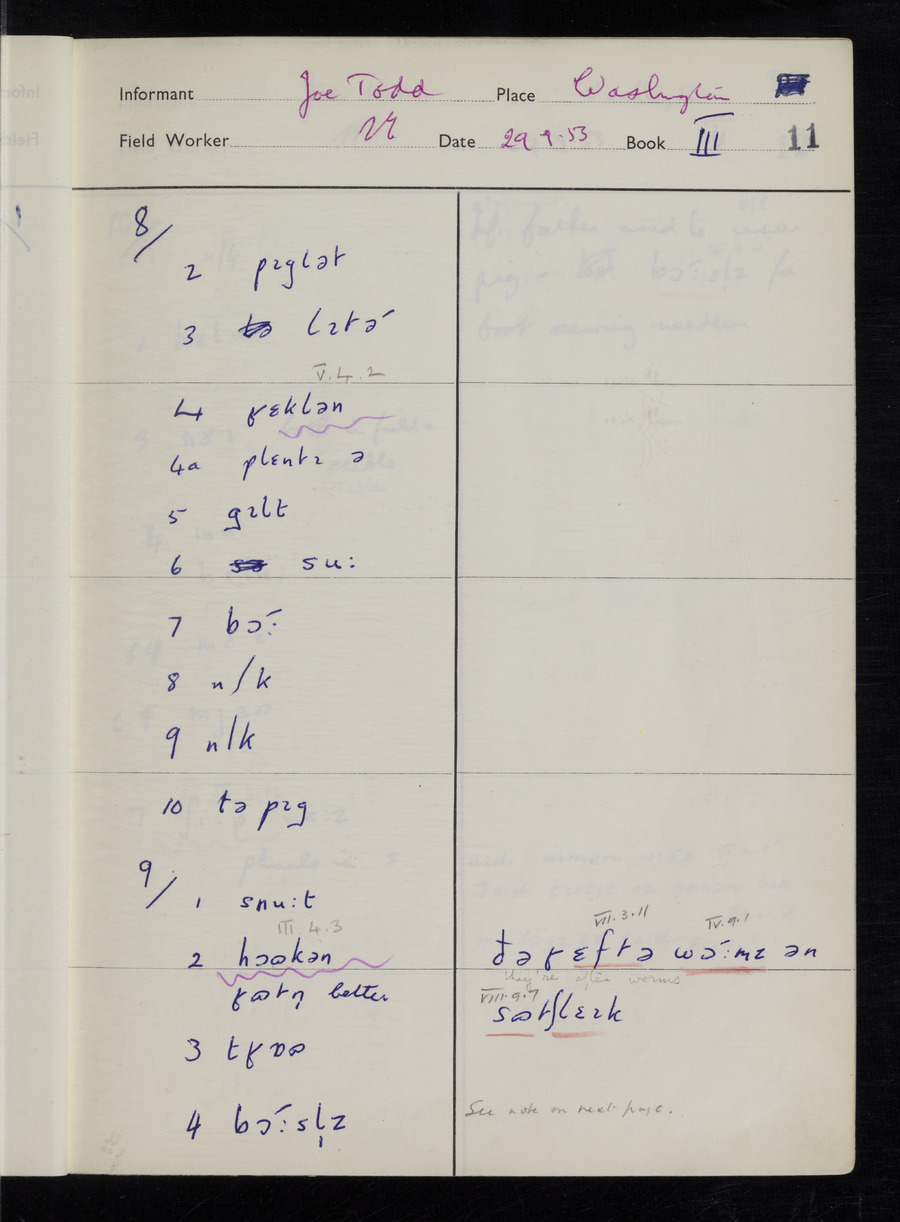 Informant Joe Todd Place Washington
Field Worker Date 29.9.53 Book III 11
8/
2 pɪglət
3 lɪtə
V.4.2
4 ʁɛklən
4a plɛntɪ ə
5 gɪlt
6 su:
7 bɔ:
8 n/k
9 n/k
10 tə pɪg
9/
1 snu:t
III.4.3
2 hɔʊkən
ʁʊtn̩ better
3 tʁɒʊ
4 bɔ:sl̩z
VII.3.11 IV.9.1
ðə ʁɛftə wɔ:mz ən
they're after worms
VIII.9.7
sʊtʃlɛɪk
See note on next page.